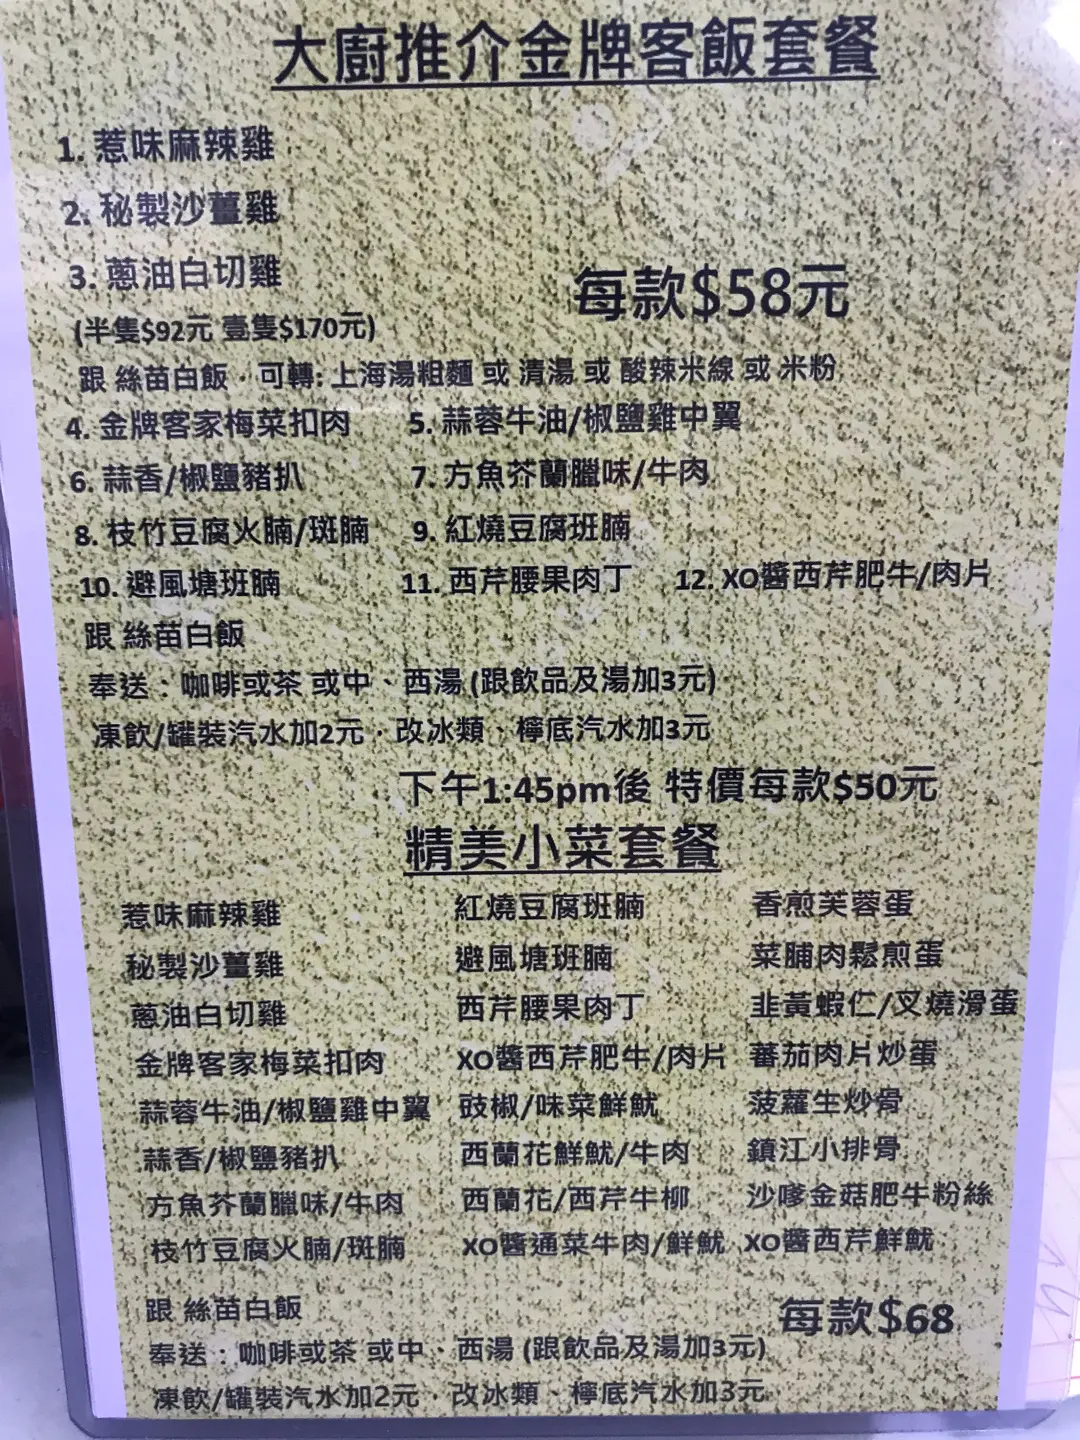 大廚推介金牌客飯套餐
1. 惹味麻辣雞
2. 秘製沙薑雞
3. 蔥油白切雞
每款$58元
(半隻$92元 壹隻$170元)
跟 絲苗白飯·可轉: 上海湯粗麵 或 清湯 或 酸辣米線 或 米粉
4. 金牌客家梅菜扣肉 5. 蒜蓉牛油/椒鹽雞中翼
6. 蒜香/椒鹽豬扒 7. 方魚芥蘭臘味/牛肉
8. 枝竹豆腐火腩/斑腩 9. 紅燒豆腐班腩
10. 避風塘班腩 11. 西芹腰果肉丁 12. XO醬西芹肥牛/肉片
跟 絲苗白飯
奉送：咖啡或茶 或中、西湯 (跟飲品及湯加3元)
凍飲/罐裝汽水加2元·改冰類、檸底汽水加3元
下午1:45pm後 特價每款$50元
精美小菜套餐
惹味麻辣雞 紅燒豆腐班腩 香煎芙蓉蛋
秘製沙薑雞 避風塘班腩 菜脯肉鬆煎蛋
蔥油白切雞 西芹腰果肉丁 韭黃蝦仁/叉燒滑蛋
金牌客家梅菜扣肉 XO醬西芹肥牛/肉片 蕃茄肉片炒蛋
蒜蓉牛油/椒鹽雞中翼 豉椒/味菜鮮魷 菠蘿生炒骨
蒜香/椒鹽豬扒 西蘭花鮮魷/牛肉 鎮江小排骨
方魚芥蘭臘味/牛肉 西蘭花/西芹牛柳 沙嗲金菇肥牛粉絲
枝竹豆腐火腩/斑腩 XO醬通菜牛肉/鮮魷 XO醬西芹鮮魷
跟 絲苗白飯
每款$68
奉送：咖啡或茶 或中、西湯 (跟飲品及湯加3元)
凍飲/罐裝汽水加2元·改冰類、檸底汽水加3元